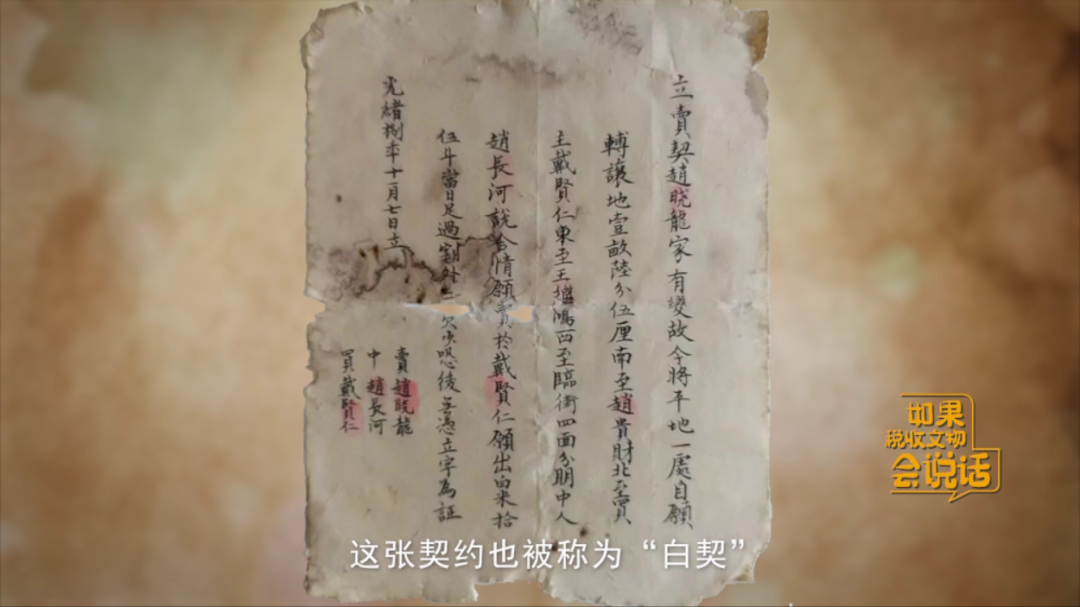 立賣契趙晓龍家有變故今將平地一處自願
轉讓地壹畝陸分伍厘南至趙貴財北至買
主戴賢仁東至王鴻西至臨街四面分朋中人
趙長河說合情願賣於戴賢仁願出白米拾
伍斗當日足過割外欠少恐後無憑立字為証
光緒捌年十一月七日立
賣趙晓龍
中趙長河
買戴賢仁
如果
税收文物
会说话
这张契约也被称为“白契”